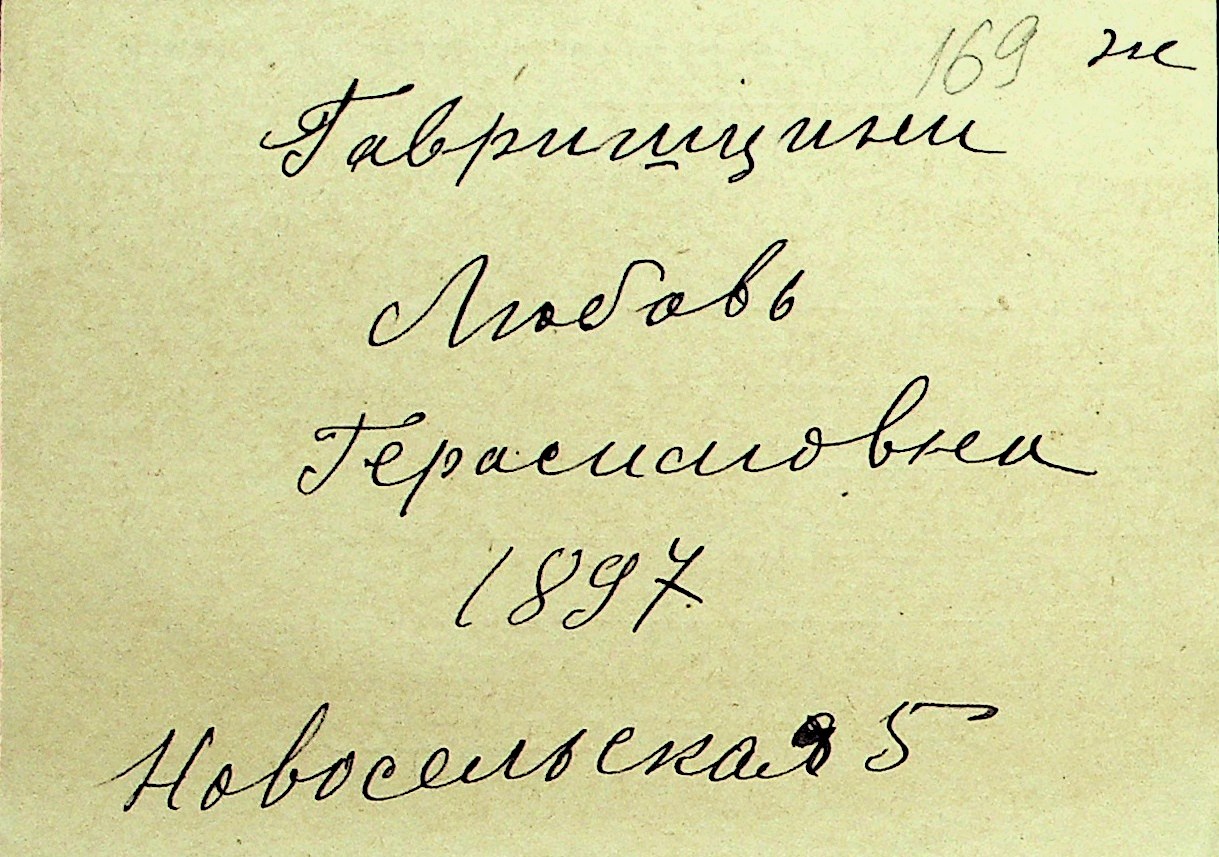 169 ж
Гавришцина
Любовь
Герасимовна
1897
Новосельская 5